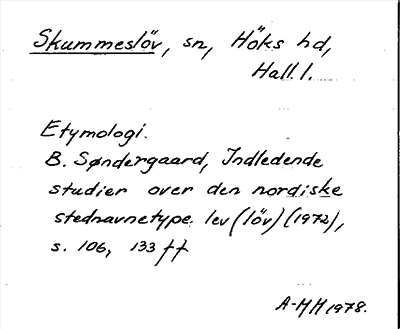 Skummeslöv, sn, Höks hd,
Hall. l.
Etymologi.
B. Søndergaard, Indledende
studier over den nordiske
stednavnetype lev (löv) (1972),
s. 106, 133 ff
A-MH 1978.